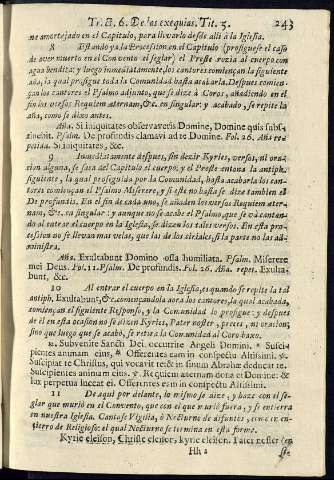 Tr. 8. 6. De las exequias. Tit. 5. 243
ne amortejado en el Capitulo, para llevarlo desde allí à la Iglesia.
8 Estando ya la Procession en el Capitulo (prosiguese el caso
de aver muerto en el Convento el seglar) el Preste rozia al cuerpo con
agua bendita; y luego immediatamente, los cantores comiençan la siguiente
aña, la qual prosigue toda la Comunidad hasta acabarla. Despues comien-
çan los cantores el Psalmo adjunto, que se dize à Coros, añadiendo en el
fin los versos Requiem æternam, &c. en singular: y acabado, se repite la
aña, como se dixo antes.
Aña. Si iniquitates observaveris Domine, Domine quis susti-
nebit. Psalm. De profundis clamavi ad te Domine. Fol. 26. Aña re-
petida. Si iniquitates, &c.
9 Immediatamente despues, sin dezir Kyries, versos, ni oracion
alguna, se saca del Capitulo el cuerpo; y el Preste entona la antiph.
siguiente, la qual proseguida por la Comunidad, hasta acabarla, los can-
tores comiençan el Psalmo Miserere, y si este no basta se dize tambien el
De profundis. En el fin de cada uno, se añaden los versos Requiem æter-
nam, &c. en singular: y aunque no se acabe el Psalmo, que se và cantan-
do al entrar el cuerpo en la Iglesia, se dizen los tales versos. En esta pro-
cession no se llevan mas velas, que las de los ziriales, si la parte no las ad-
ministra.
Aña. Exultabunt Domino ossa humiliata. Psalm. Miserere
mei Deus. Fol. 11. Psalm. De profundis. Fol. 26. Aña. repet. Exulta-
bunt, &c.
10 Al entrar el cuerpo en la Iglesia, e quando se repite la tal
antiph. Exultabunt, &c. començandola aora los cantores, la qual acabada,
comiençan el siguiente Responso, y la Comunidad lo prosigue: y despues
de èl en esta ocasion no se dizen Kyries, Pater noster, preces, ni oracion;
sino que luego que se acabò, se retira la Comunidad al Coro baxo.
℟. Subvenite Sancti Dei, occurrite Angeli Domini. * Susci-
pientes animam eius, * Offerentes eam in conspectu Altissimi. ℣.
Suscipiat te Christus, qui vocavit te: & in sinum Abrahæ deducat te.
Suscipientes animam eius. ℣. Requiem æternam dona ei Domine: &
lux perpetua luceat ei. Offerentes eam in conspectu Altissimi.
11 De aqui por delante, lo mismo se dize, y haze con el se-
glar que murió en el Convento, que con el que murió fuera, y se entierra
en nuestra Iglesia. Cantase Vigilia, ò Nocturno de difuntos, como en en-
tierro de Religioso: el qual Nocturno se termina en esta forma.
Kyrie eleison, Christe eleison, kyrie eleison. Pater noster (en
Hh 2